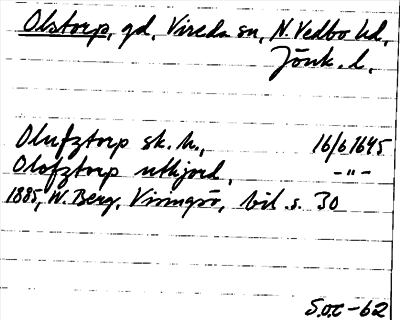 Olstorp, gd, Vireda sn, N. Vedbo hd,
Jönk. l.
Olufztorp sk. h., 16/6 1645
Olofztorp utkjord, -"-
1885, W. Berg, Visingsö, bil. s. 30
S.O.C -62